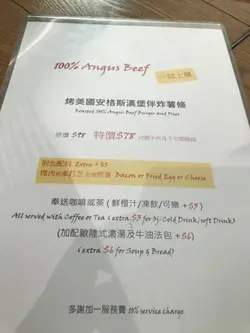 100% Angus Beef
烤美國安格斯漢堡伴炸薯條
Roasted 100% Angus Beef Burger and Fries
特價$78
附加配料 Extra + $5
Bacon or Fried Egg or Cheese
奉送咖啡或茶 (鮮橙汁/凍飲/可樂 + $3)
All served with Coffee or Tea (extra $3 for oj/Cold Drink/soft Drink)
(加配歐陸式濃湯及牛油法包 + $6)
(extra $6 for Soup & Bread)
多謝加一服務費 10% service charge